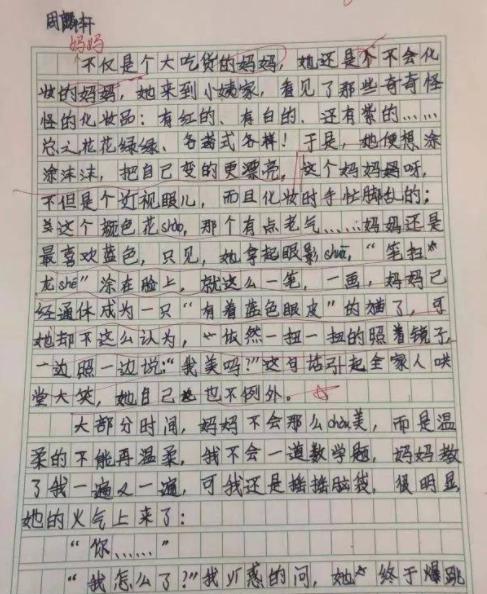 周 轩
妈妈
不仅是个大吃货的妈妈，她还是个不会化
妆的妈妈，她来到小姨家，看见了那些奇奇怪
怪的化妆品：有红的、有白的、还有紫的……
总之花花绿绿、各式各样！于是，她便想涂
涂沫沫，把自己变的更漂亮，这个妈妈呀，
不但是个近视眼儿，而且化妆时手忙脚乱的；
这个颜色花shào，那个有点老气……妈妈还是
最喜欢蓝色，只见，她拿起眼影shuā，“笔扫
龙shé”涂在脸上，就这么一笔，一画，妈妈已
经通体成为一只“有着蓝色眼皮”的猫了，可
她却不这么认为，依然一扭一扭的照着镜子，
一边照一边说：“我美吗？”这句话引起全家人哄
堂大笑，她自己也不例外。
大部分时间，妈妈不会那么chòu美，而是温
柔的不能再温柔，我不会一道数学题，妈妈教
了我一遍又一遍，可我还是摇摇脑袋，很明显
她的火气上来了：
“你……”
“我怎么了？”我疑惑的问，她终于爆跳